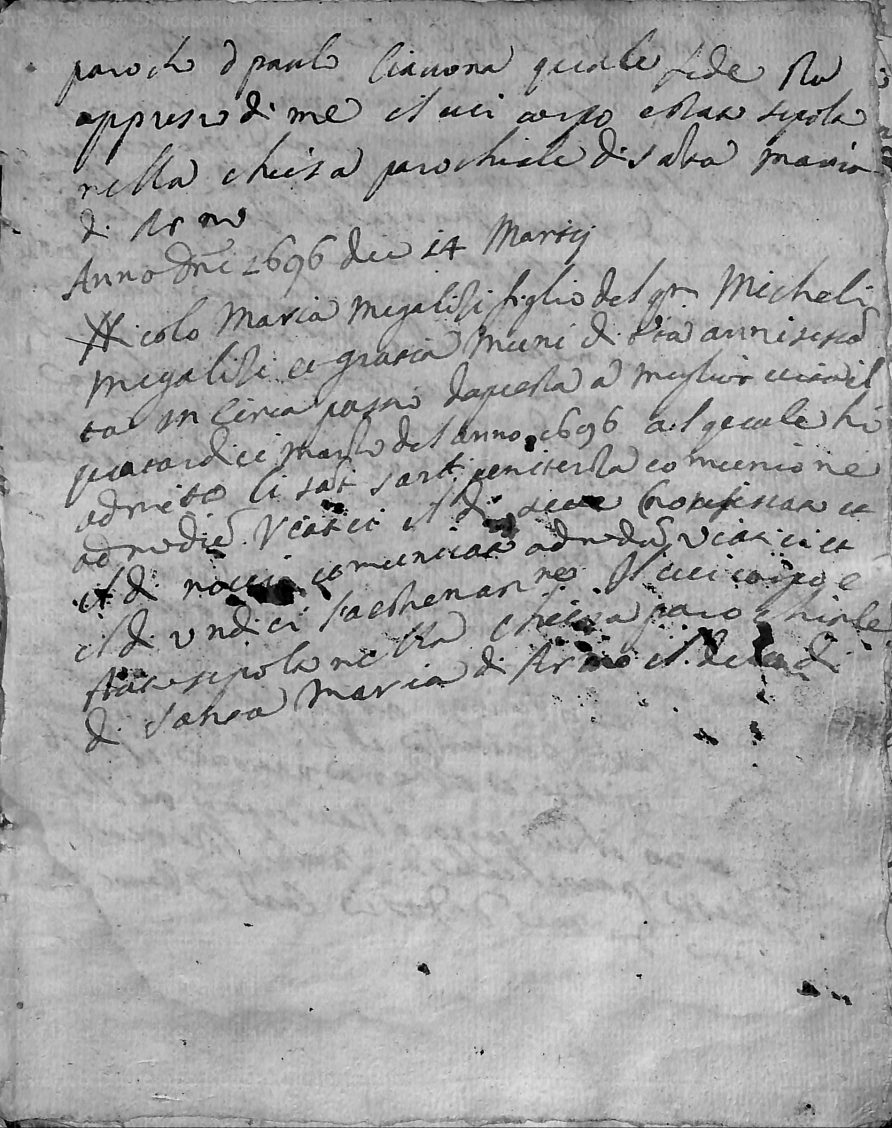 paroch D paulo Ciavona quale fede sta
appresso di me il cui corpo è stato sepolto
nella chiesa parochiale di santa maria
di Armo
Anno dni 1696 die 14 Martij
Nicolo Maria Megalizi figlio del qm Micheli
Megalizi et gratia di età anni
ta in circa passò da questa a meglior vita il
quatordici marzo del anno 1696 al quale hò
admēso li sat sart penitenza comunione
ad modū Viatici il di confessato et
il di comunicato ad modū viatici et
il di undici Il cui corpo è
stato sepolto nella chiesa parochiale
di santa Maria di Armo il di